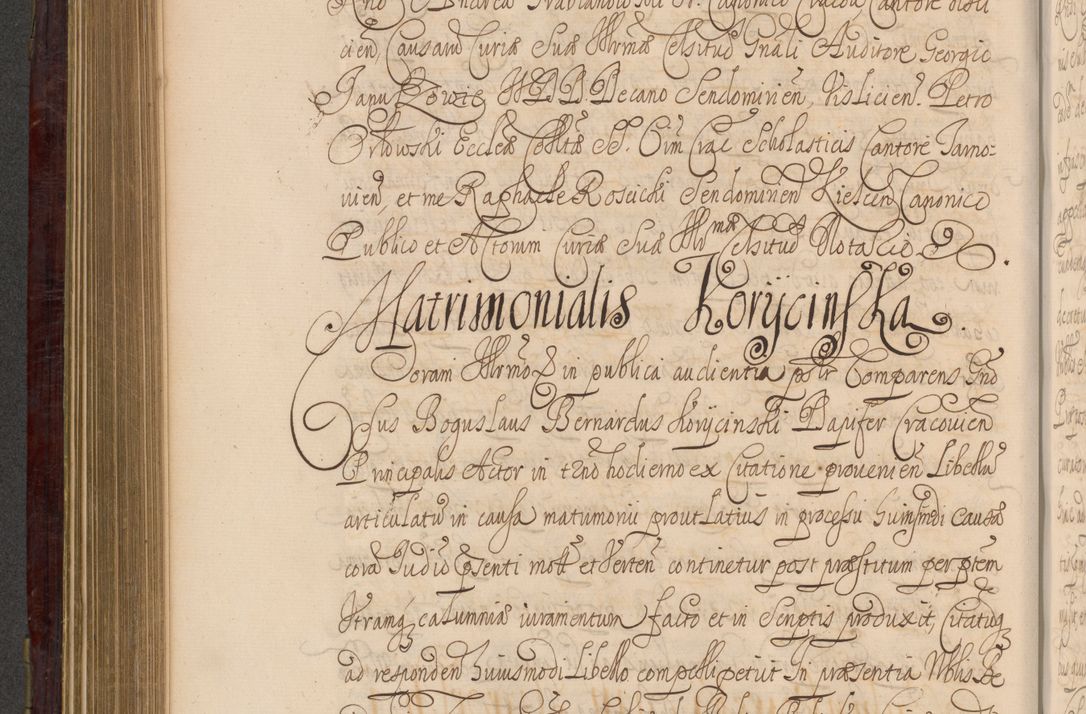 cień, Causarū Curiæ Suæ Illrmæ Celsitud Gnāli Auditore Georgio
Janu Zowzic W D D. Decano Sendomirień, Vislicień. Petro
Orłowski Eccleæ Collītæ SS. Oīm Crac Scholasticis Cantore Tarno-
vień, et me Raphaele Roscicki Sendomirień Kielceń Canonico
Publico et Actorum Curiæ Suæ Illrmæ Celsitud Notario.
Matrimonialis Korycińska.
Coram Illrmo in publica audientia pstr Comparens Gno
sus Boguslaus Bernardus Koryciński Dapifer Cracovień
Principalis Actor in tŕno hodierno ex Citatione provenień Libellū
articulatū in causa matrimonii prout Latius in processu huiusmdi causæ
corā Judio psenti mott et Verteń continetur post præstitum per ptem
Utramq calumniæ iuramentum facto et in Scriptis produxit, Citatūq
ad responden huiusmodi Libello compelli petiit In præsentia Nblis Be